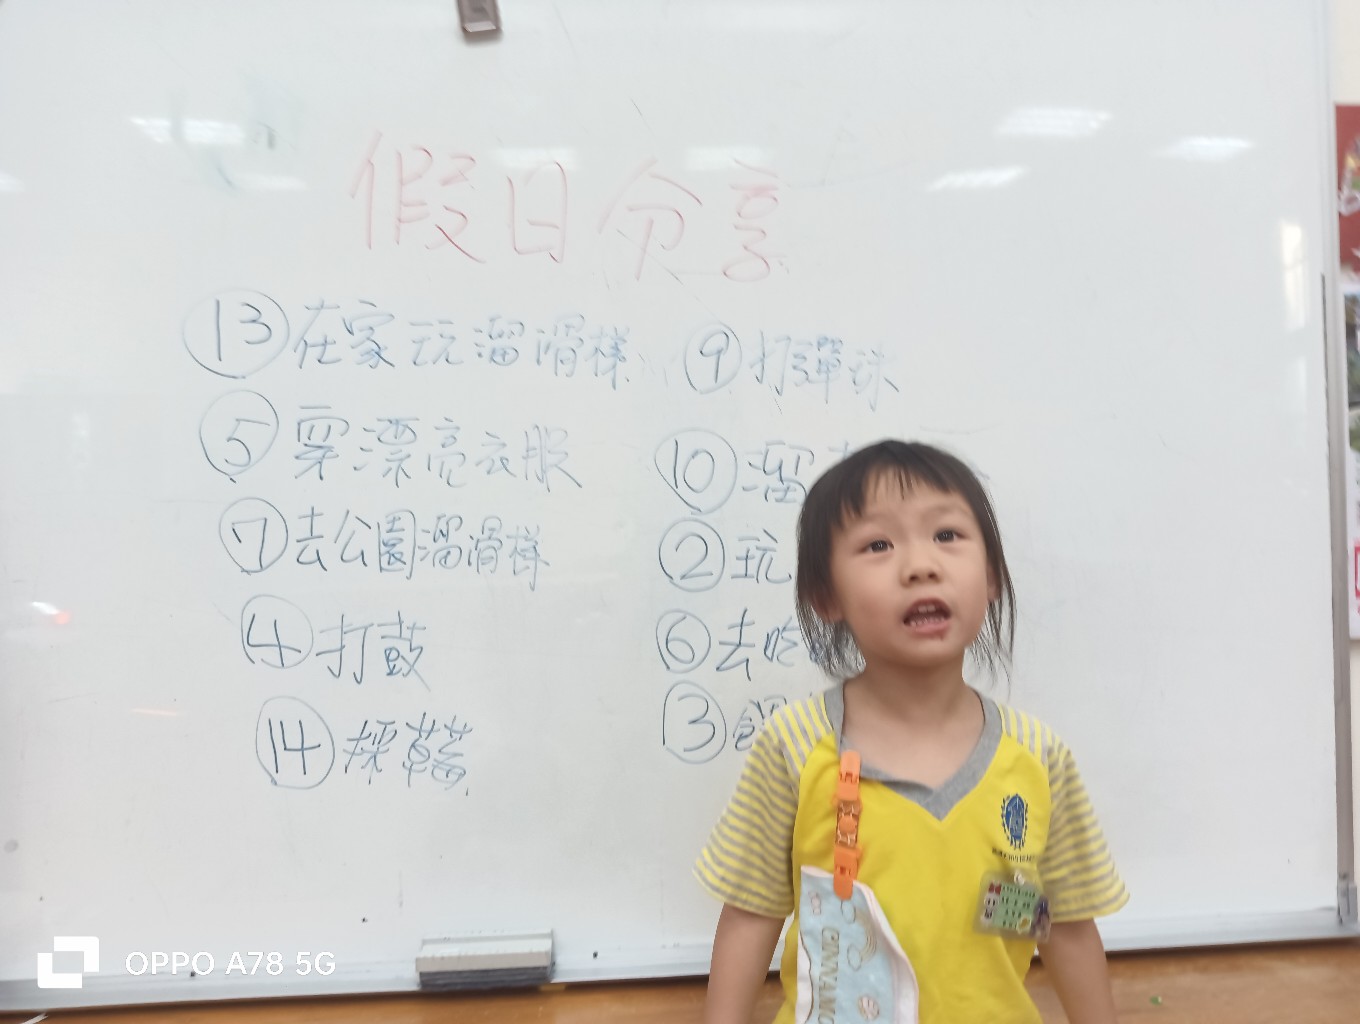 假日分享
⑬在家玩溜滑樣
⑤穿漂亮衣服
⑦去公園溜滑樣
④打鼓
⑭採草莓
⑨打彈珠
⑩溜
②玩
⑥去吃
③
CINNAMO
OPPO A78 5G